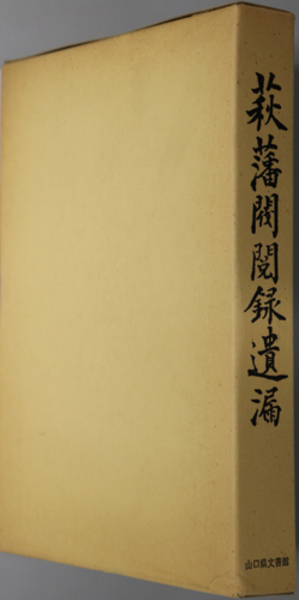 萩藩閥閲録遺漏
山口県文書館